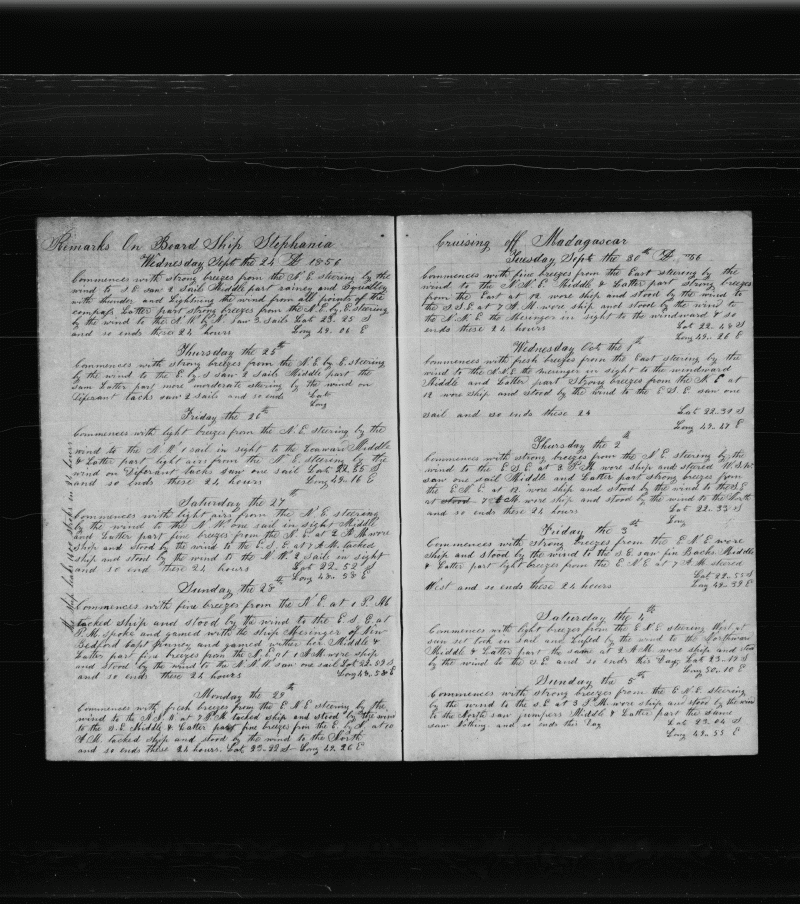 Remarks On Board Ship Stephania
Wednesday Sept the 24 Th 1856
Commences with strong breezes from the N E steering by the
wind to S E saw 2 Sails Middle part rainey and Squalley
with thunder and Lightning the wind from all points of the
compass Latter part strong breezes from the N E by E steering
by the wind to the N W by N Saw 3 sails Lat 23.25 S
and so ends these 24 hours Long 49.06 E
Thursday the 25th
Commences with strong breezes from the N E by E steering
by the wind to the E by S saw 2 sails Middle part the
sam Latter part more moderate steering by the wind on
Diferant tacks saw 2 sails and so ends Lat
Long
Friday the 26th
Commences with light breezes from the N E steering by the
wind to the N W 1 sail in sight to the Leaward Middle
& Latter part light airs from the N E steering by the
wind on Diferant tacks saw one sail Lat 22.55 S
and so ends these 24 hours Long 49-16 E
Saturday the 27th
Commences with light airs from the N E steering
by the wind to the N W one sail in sight Middle
and Latter part fine breezes from the N.E. at 2 A M wore
Ship and stood by the wind to the E.S.E. at 7 A M. tacked
ship and stood by the wind to the N W. 2 Sails in sight
and so ends these 24 hours Lat 22.52 S
Long 48.58 E
Sunday the 28th
Commences with fine breezes from the N E. at 1 P. M
tacked ship and stood by the wind to the E S E at
P.M. spoke and gamed with the ship Meringer of New
Bedford Capt and gamed wither her Middle &
Latter part fine breezes from the N.E. at 1 A.M. wore ship
and stood by the wind to the N N W saw one sail Lat 22.59 S
and so ends these 24 hours Long 48.58 E
Monday the 29th
Commences with fresh breezes from the E N E steering by the
wind to the N. N. W at 7 P M. tacked ship and stood by the wind
to the S.E. Middle & Latter part fine breezes from the E by N. at 10
A.M. tacked ship and stood by the wind to the North
and so ends these 24 hours. Lat 23-22 S Long 49.26 E
Cruising off Madagascar
Tuesday Sept the 30th Th /56
Commences with fine breezes from the East steering by the
wind to the N N E Middle & Latter part strong breezes
from the East at 12 wore ship and stood by the wind to
the S.S.E at 7 A.M. wore ship and stood by the wind to
the N.N.E the Meringer in sight to the windward & so
ends these 24 hours Lat 22.48 S
Long 49.26 E
Wednesday Oct the 1th
Commences with fresh breezes from the East steering by the
wind to the S.S.E the meringer in sight to the windward
Middle and Latter part Strong breezes from the N E at
12 wore ship and stood by the wind to the E S E. saw one
sail and so ends these 24 Lat 22.30 S
Long 49.47 E
Thursday the 2th
Commences with strong breezes from the N E steering by the
wind to the E S E at 3 P.M. wore ship and steered W.S.W.
saw one sail Middle and Latter part strong breezes from
the E N E. at 12 wore ship and stood by the wind to the S.E
at 7 A M. wore ship and stood by the wind to the North
and so ends these 24 hours Lat 22.33 S
Long
Friday the 3th
Commences with strong breezes from the E N E wore
ship and stood by the wind to the S E. saw fin Backs Middle
& Latter part light breezes from the E N E at 7 A.M. steered
West and so ends these 24 hours Lat 22.55 S
Long 49.59 E
Saturday the 4th
Commences with light breezes from the E N E steering West at
sun set took in sail and Lufed by the wind to the Northward
Middle & Latter part the same at 2 A M. wore ship and stood
by the wind to the S E and so ends this Day. Lat 23-19 S
Long 50-10 E
Sunday the 5th
Commences with strong breezes from the E N E. steering
by the wind to the S E at 3 P.M. wore ship and stood by the wind
to the North saw jumpers Middle & Latter part the same
saw Nothing and so ends this Day Lat 23.04 S
Long 49-55 E